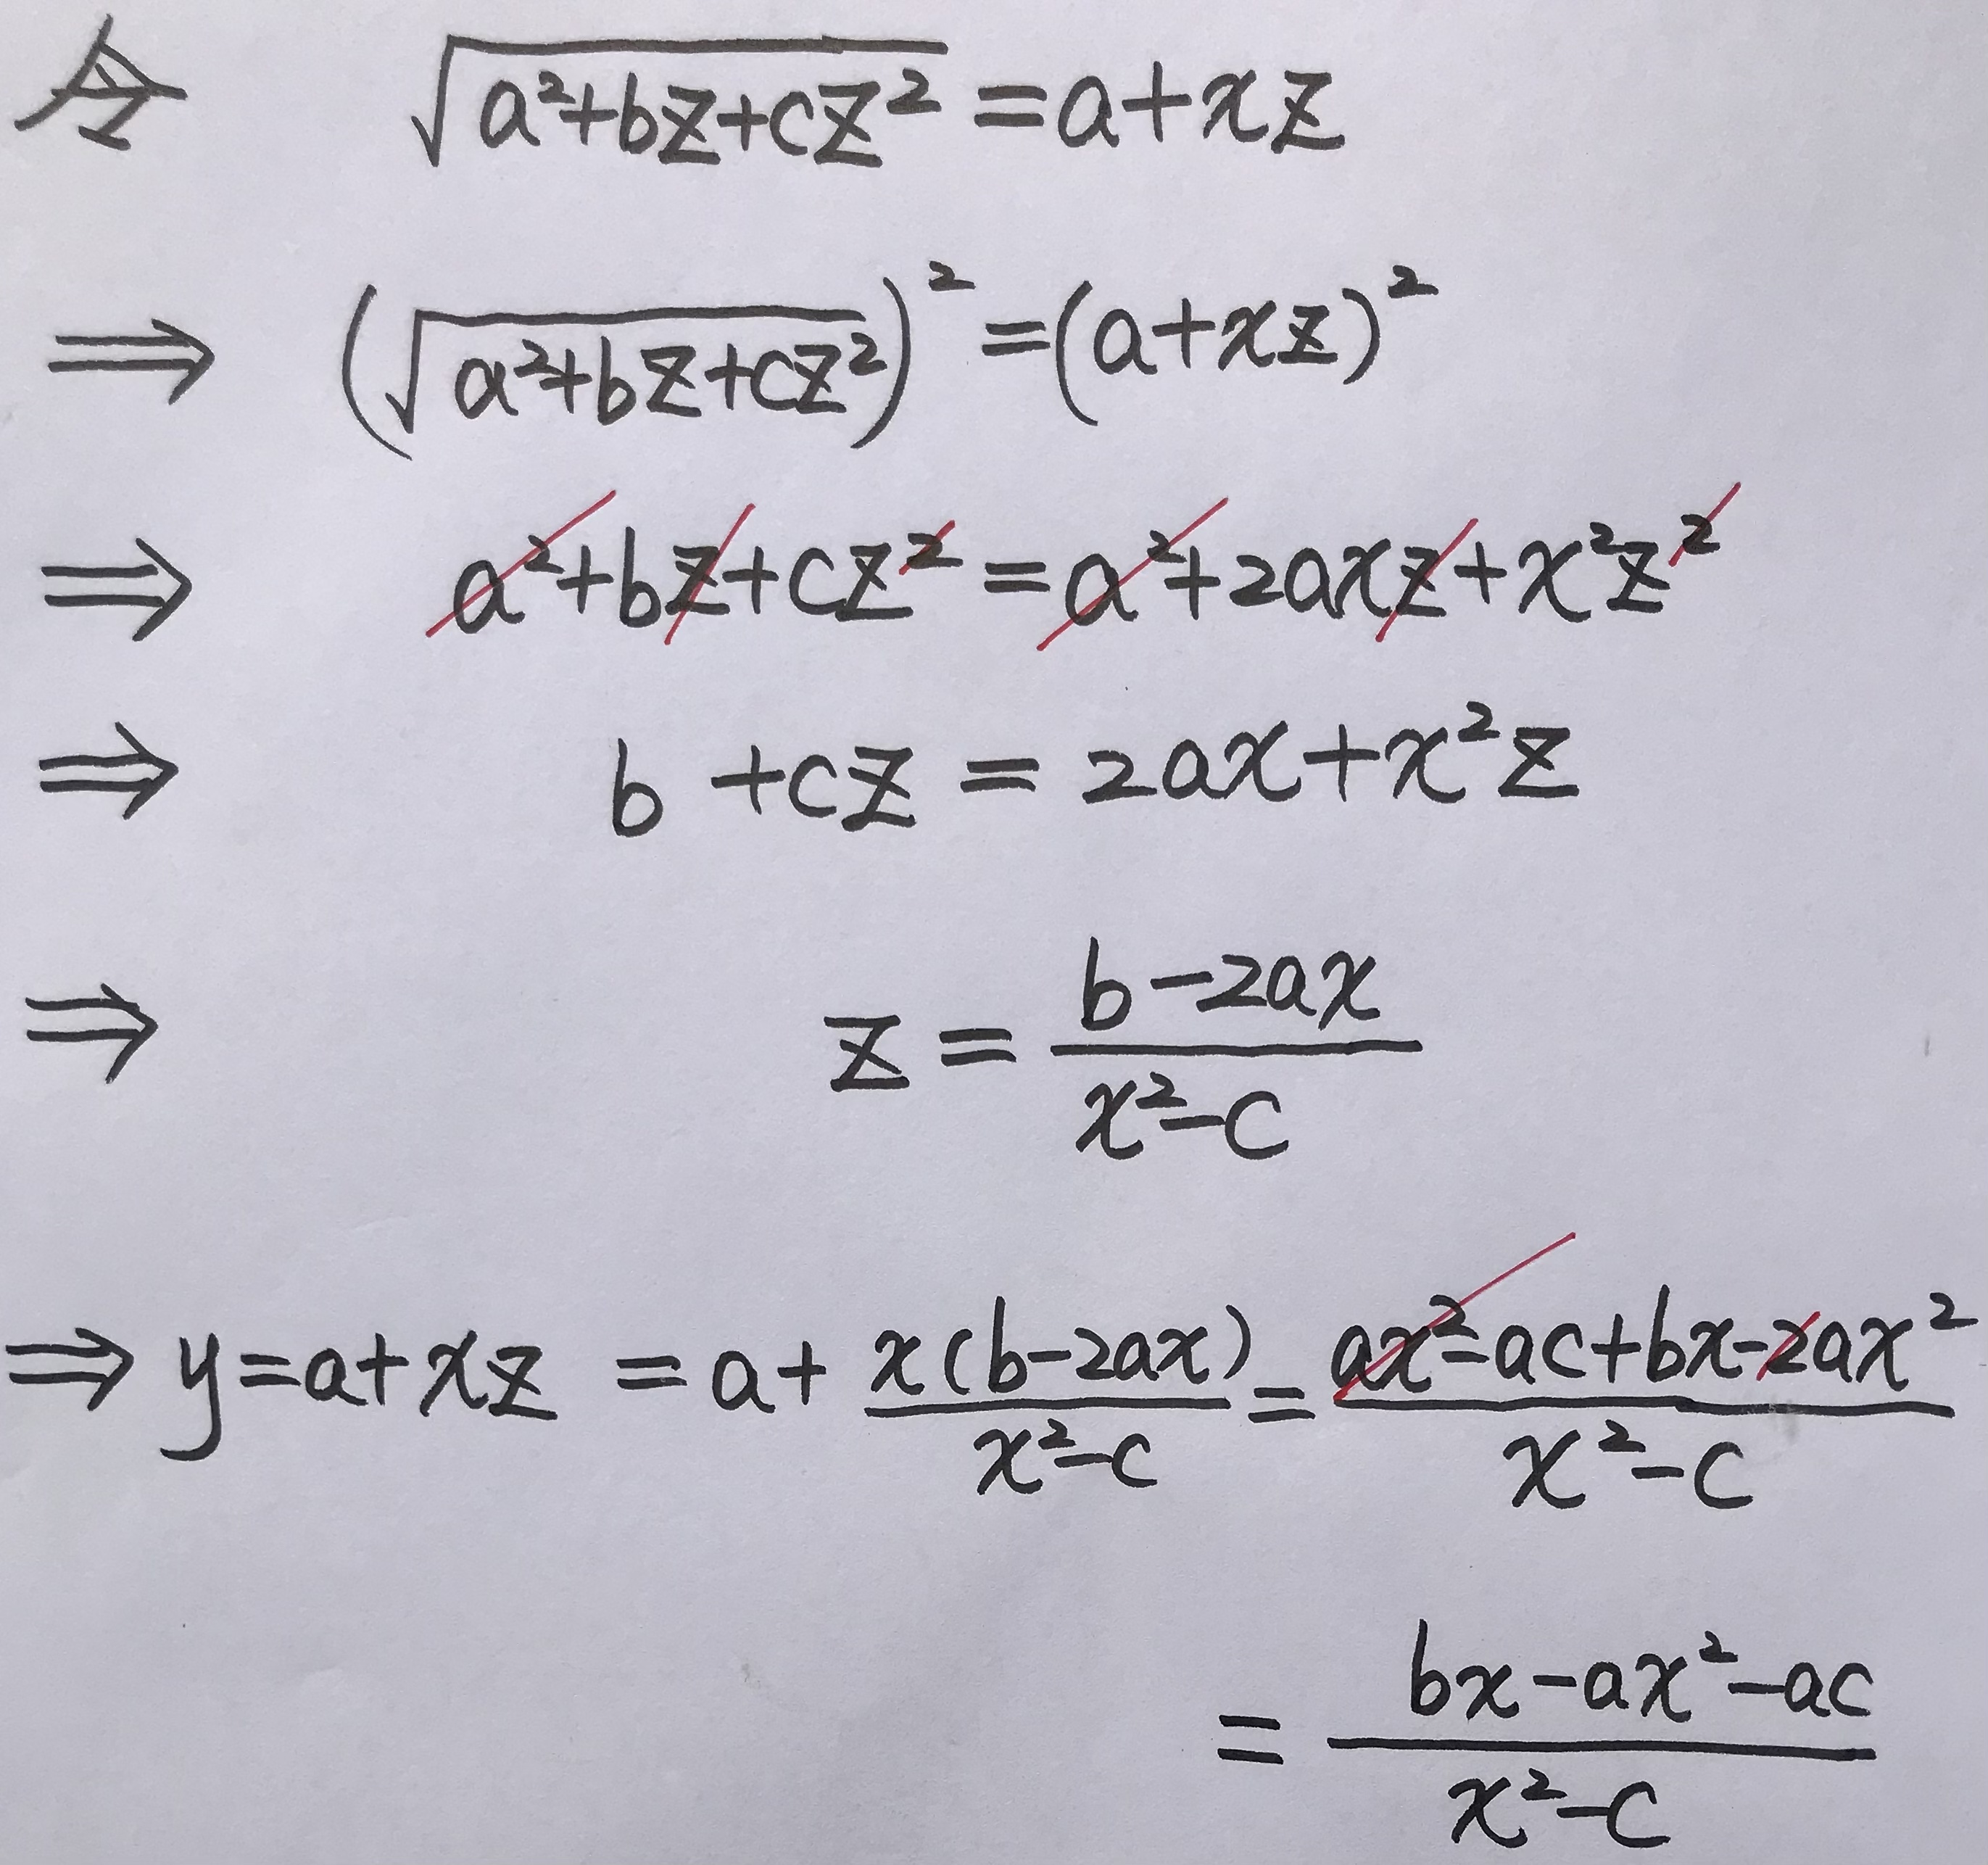 令 √(a²+bz+cz²) = a+xz
⇒ (√(a²+bz+cz²))² = (a+xz)²
⇒ a²+bz+cz² = a²+2axz+x²z²
⇒ b +cz = 2ax+x²z
⇒ z = (b-2ax)/(x²-c)
⇒ y=a+xz = a+ x(b-2ax)/(x²-c) = (ax²-ac+bx-2ax²)/(x²-c)
= (bx-ax²-ac)/(x²-c)